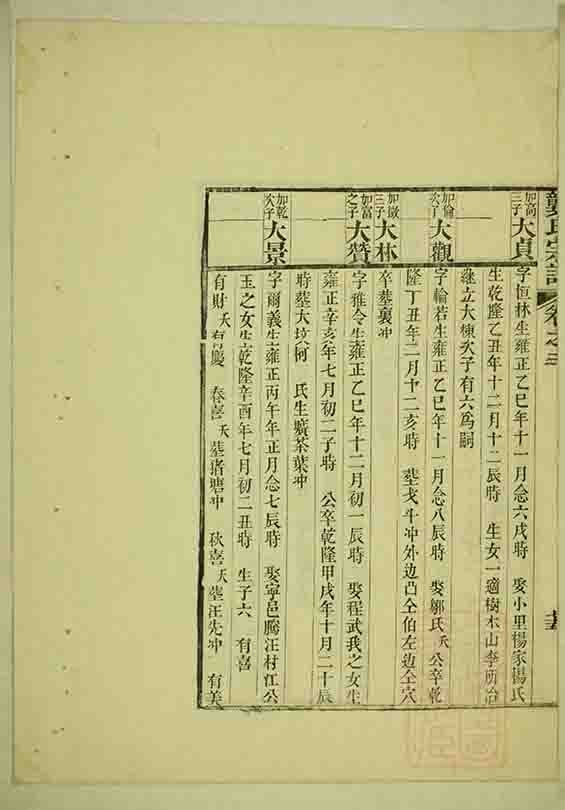 龔氏宗譜
卷之
加高三子大貞
字恒林生雍正乙巳年十一月念六戌時 娶小里楊家楊氏
生乾隆乙丑年十二月十二辰時 生女一適樹木山李
繼立大棟次子有六爲嗣
加倫次子大觀
字輪若生雍正乙巳年十一月念八辰時 娶鄒氏夭 公卒乾
隆丁丑年二月十二亥時 葬戈斗冲外边凸仝伯左边仝穴
三子大林
卒葬裏冲
加富之子大贊
字雅令生雍正乙巳年十二月初一辰時 娶程武我之女生
雍正辛亥年七月初二子時 公卒乾隆甲戌年十月二十辰
時葬大坟 氏生壙茶葉冲
加乾次子大景
字爾義生雍正丙午年正月念七辰時 娶寧邑騰汪村江公
玉之女生乾隆辛酉年七月初二丑時 生子六 有喜
有財夭 有慶 春喜夭葬猪塘冲 秋喜夭葬汪先冲 有美